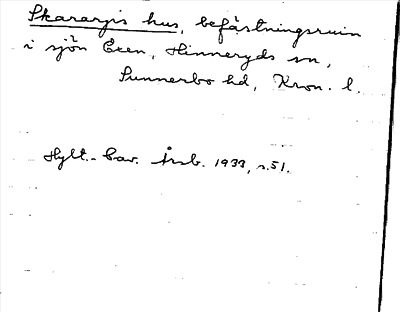 Skararpis hus, befästningsruin
i sjön Exen, Hinneryds sn,
Sunnerbo hd, Kron. l.
Hylt.-Cav. Årsb. 1933, s.51.